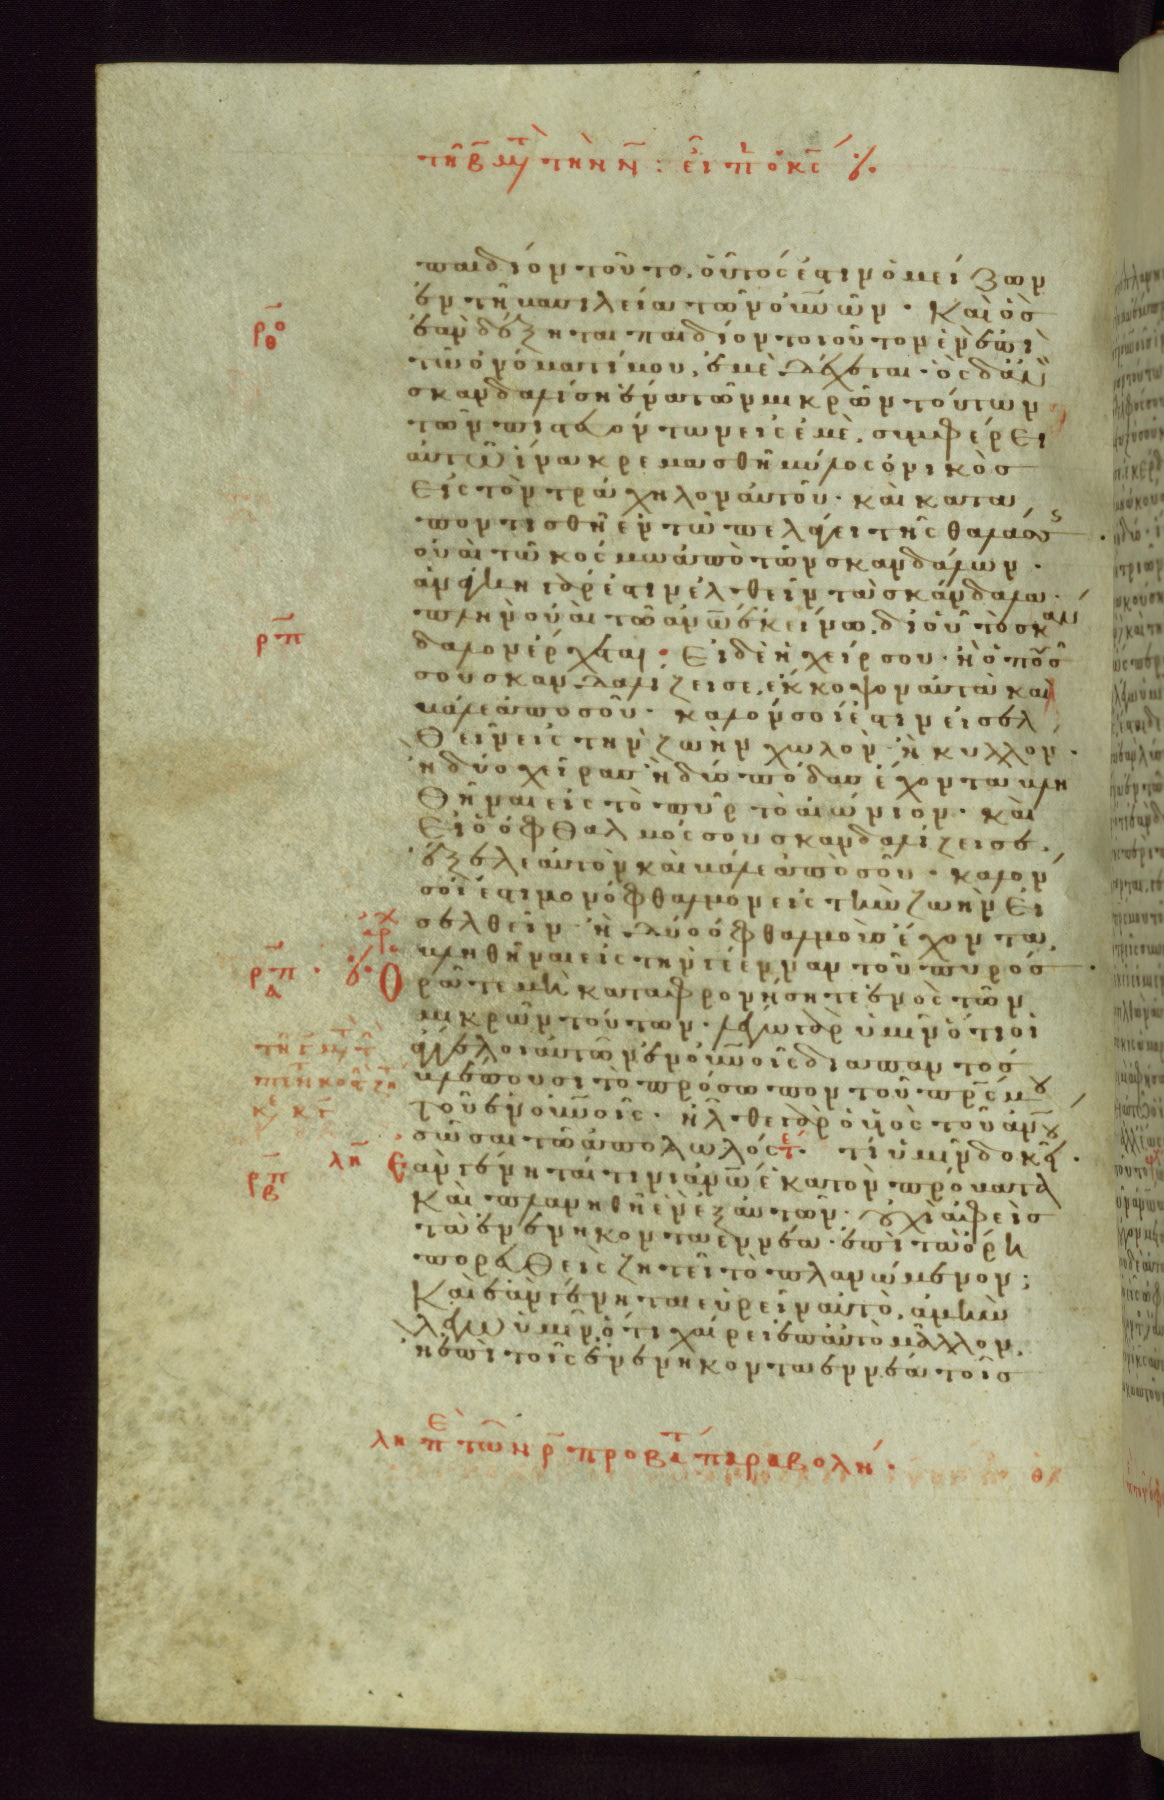 τῆ β̄ μτ τὴν ν̄ : εἶπ ὁ κς̄
παιδίον τοῦτο. οὗτός ἐστιν ὁ μείζων
ἐν τῆ βασιλεία τῶν οὐν̄ῶν. Καὶ ὃσ
ρο̄θ
ἐὰν δέξηται παιδίον τοιοῦτον ἓν ἐπὶ
τῶ ὀνόματί μου, ἐμὲ δέχεται· ὃς δἂν
σκανδαλίση ἕνα τῶν μικρῶν τούτων
τῶν πιστευόντων εἰς ἐμὲ, συμφέρει
αὐτῶ ἵνα κρεμασθῆ μύλος ὀνικὸσ
εἰς τὸν τράχηλον αὐτοῦ· καὶ κατα
ποντισθῆ ἐν τῶ πελάγει τῆς θαλάσς
οὐαὶ τῶ κόσμω ἀπὸ τῶν σκανδάλων.
ἀνάγκη γάρ ἐστιν ἐλθεῖν τὰ σκάνδαλα.
πλὴν οὐαὶ τῶ ἀν̄ω ἐκείνω. δι οὗ τὸ σκαν
ρπ̄
δαλον ἔρχεται: Εἰ δὲ ἡ χείρ σου· ἢ ὁ ποῦσ
σου σκανδαλίζει σε, ἔκκοψον αὐτὰ καὶ
βάλε ἀπὸ σοῦ· καλόν σοί ἐστιν εἰσελ
θεῖν εἰς τὴν ζωὴν χωλὸν ἢ κυλλόν.
ἢ δύο χεῖρασ ἢ δύο πόδασ ἔχοντα βλη
θῆναι εἰς τὸ πῦρ τὸ αἰώνιον. καὶ
Εἰ ὁ ὀφθαλμός σου σκανδαλίζει σε.
ἔξελε αὐτὸν καὶ βάλε ἀπὸ σοῦ. καλόν
σοί ἐστι μονόφθαλμον εἰς τὴν ζωὴν εἰ
σελθεῖν· ἢ δύο ὀφθαλμοὺσ ἔχοντα,
βληθῆναι εἰς τὴν γέενναν τοῦ πυρόσ.
ρπ̄α
Ὁρᾶτε μὴ καταφρονήσητε ἑνὸς τῶν
μικρῶν τούτων. λέγω γὰρ ὑμῖν ὅτι οἱ
ἄγγελοι αὐτῶν ἐν οὐν̄οῖς διαπαντὸσ
βλέπουσι τὸ πρόσωπον τοῦ πρ̄ς μου
τοῦ ἐν οὐν̄οῖς. ἦλθε γὰρ ὁ υἱὸς τοῦ ἀν̄ου
σῶσαι τὸ ἀπολωλός. τί ὑμῖν δοκεῖ.
λη̄
ρπ̄β
Ἐὰν γένηταί τινι ἀν̄ω ἑκατὸν πρόβατα
καὶ πλανηθῆ ἓν ἐξ αὐτῶν. οὐχὶ ἀφεὶσ
τὰ ἐνενηκονταεννέα. ἐπὶ τὰ ὄρη
πορευθεὶς ζητεῖ τὸ πλανώμενον;
Καὶ ἐὰν γένηται εὑρεῖν αὐτὸ, ἀμὴν
λέγω ὑμῖν, ὅτι χαίρει ἐπ αὐτὸ μᾶλλον,
ἢ ἐπὶ τοῖς ἐνενηκονταεννέα τοῖσ
λη π̄ε τῶν ρ̄ προβάτ παραβολή.